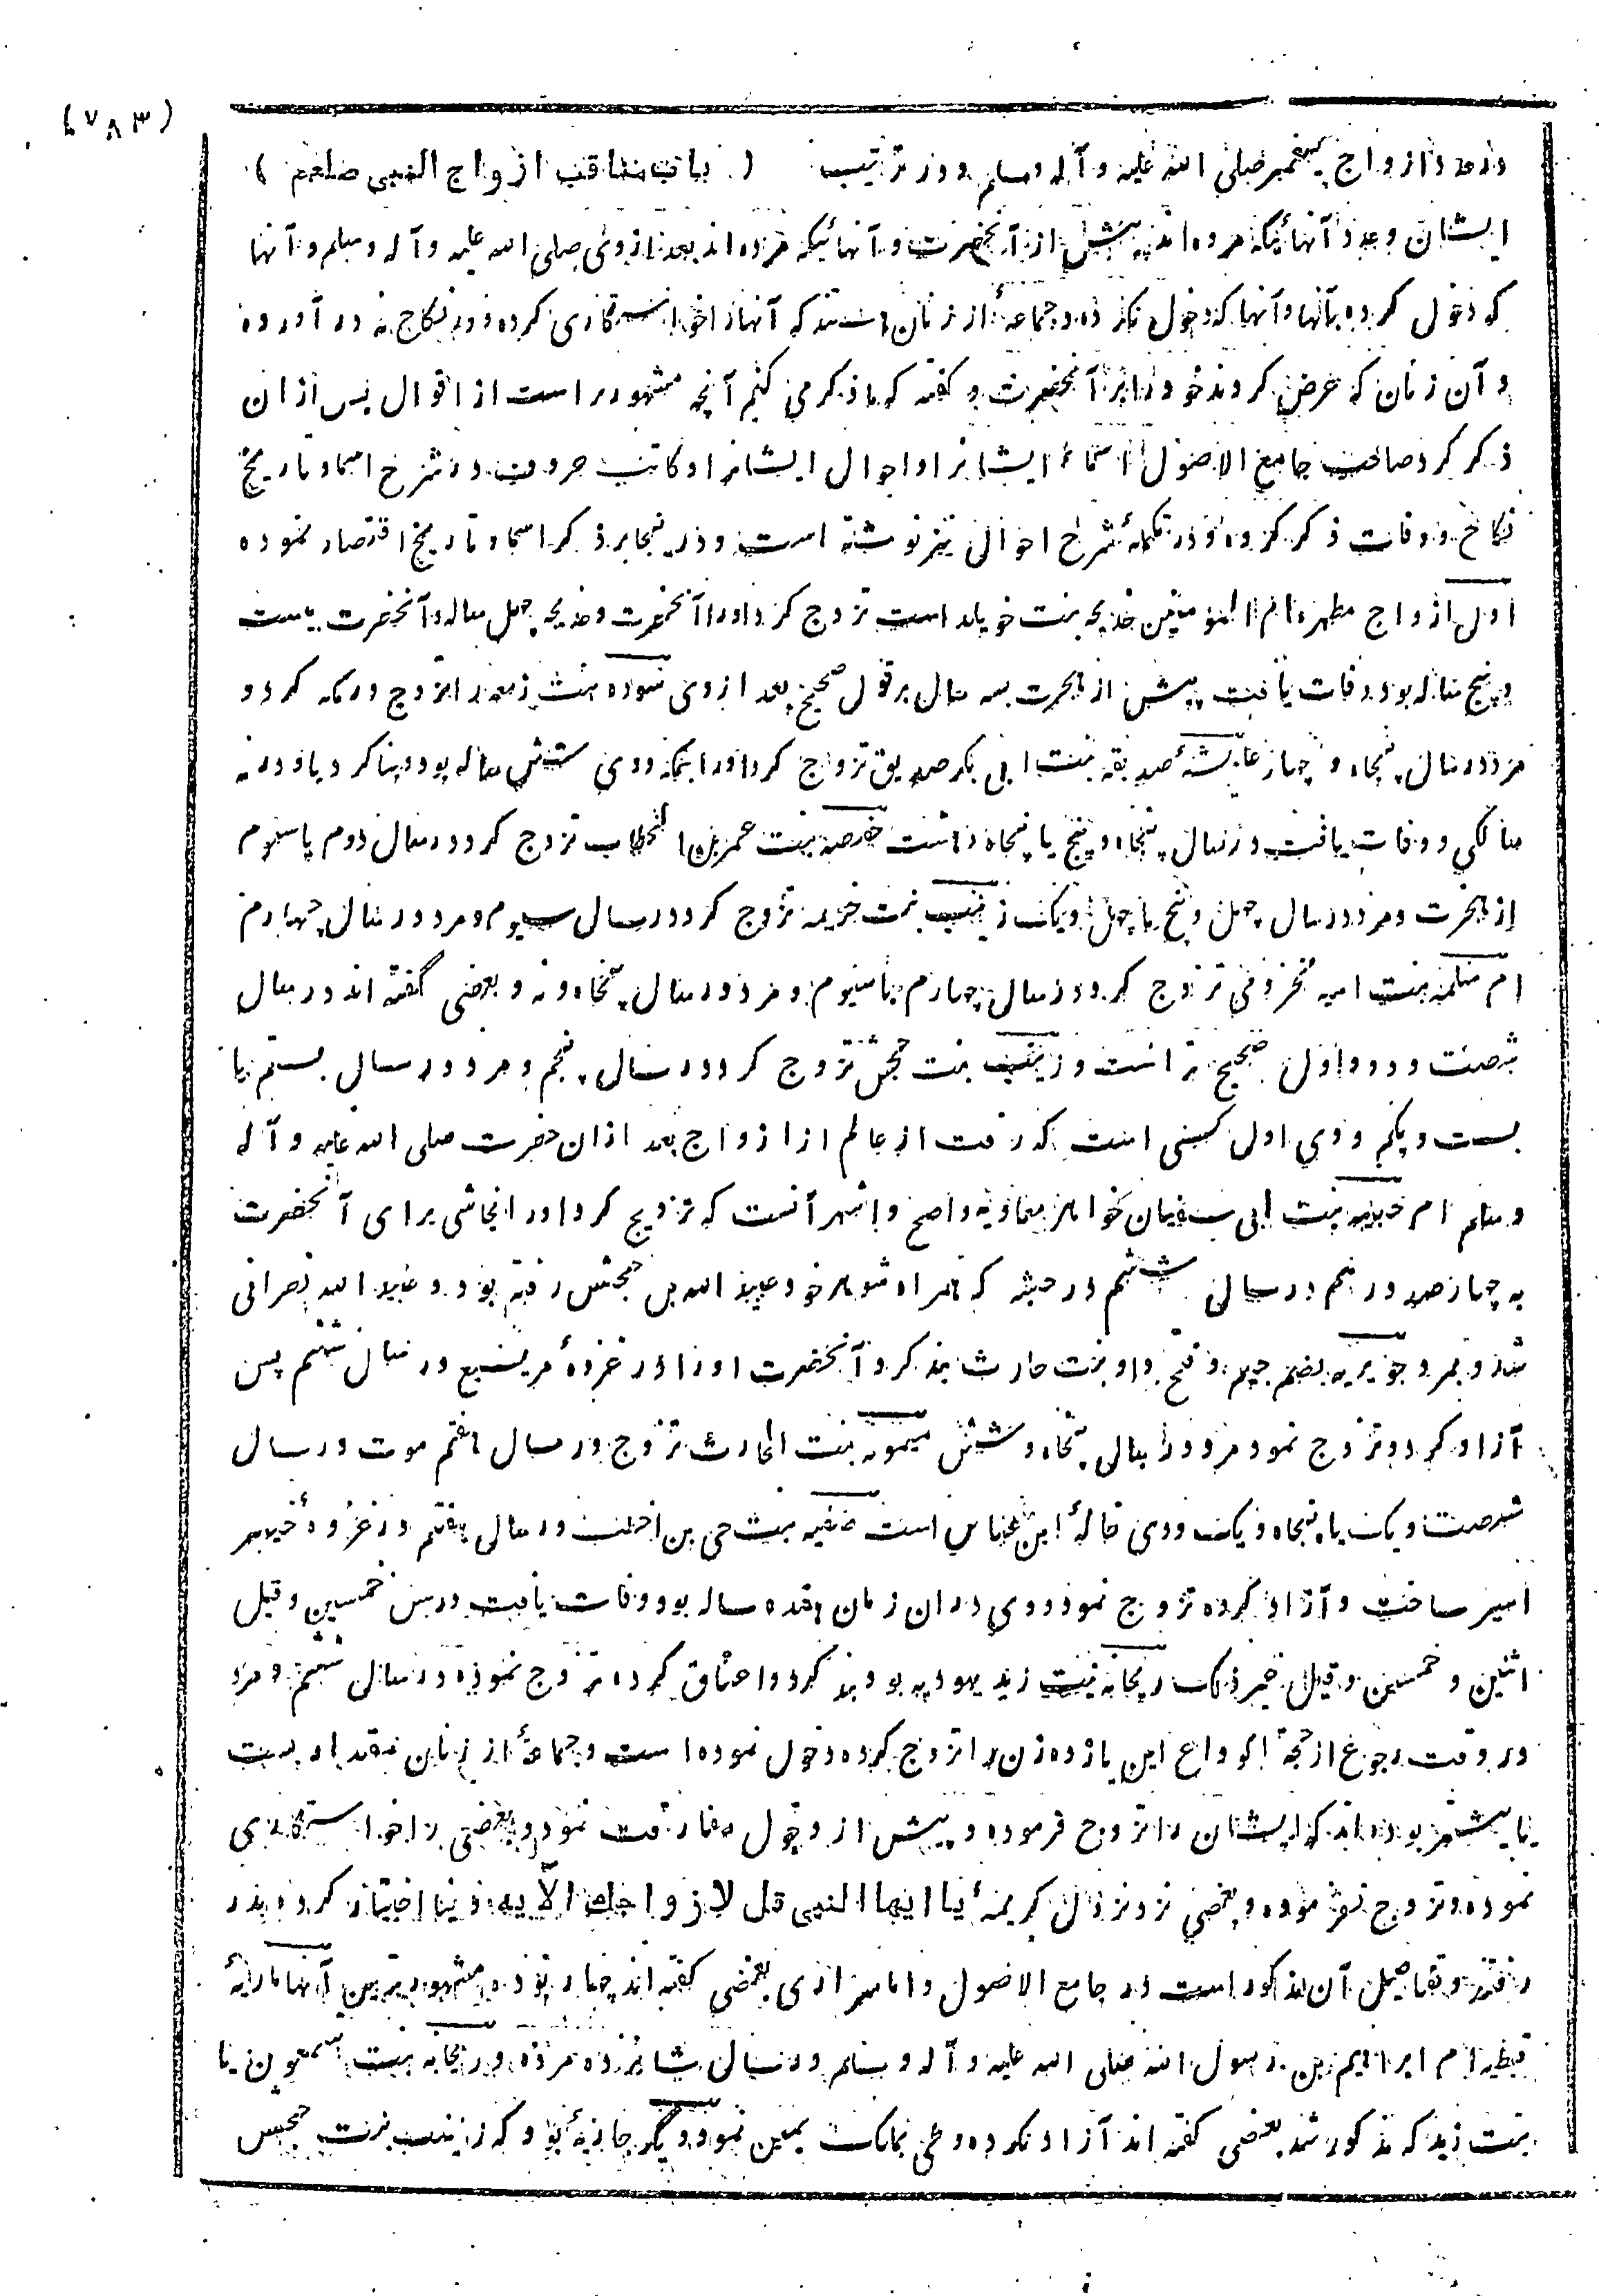 (۷۸۳)
در عدد ازواج پیغمبر صلی الله علیه و آله وسلم و در ترتیب ( باب مناقب ازواج النبی صلعم )
ایشان و عدد آنهائیکه مرده اند پیش از آنحضرت و آنهائیکه مرده اند بعد از وی صلی الله علیه و آله وسلم و آنها
که دخول کرده بآنها و آنها که دخول نکرده و جماعهٔ از زنان هستند که آنها را خواستگاری کرده و در نکاح نه در آورده
و آن زنان که عرض کردند خود را بر آنحضرت و گفته که ما ذکر می کنیم آنچه مشهور است از اقوال پس ازان
ذکر کرد صاحب جامع الاصول اسماءٔ ایشانرا و احوال ایشانرا و کاتب حروف در شرح اسما و تاریخ
نکاح و وفات ذکر کرده و در تکملهٔ شرح احوال نیز نوشته است و درینجا بر ذکر اسما و تاریخ اقتصار نموده
اول ازواج مطهره ام المؤمنین خدیجه بنت خویلد است تزوج کرد اورا آنحضرت و خدیجه چهل ساله و آنحضرت بیست
و پنج ساله بود وفات یافت پیش از هجرت بسه سال بر قول صحیح بعد از وی سوده بنت زمعه را تزوج در مکه کرد و
مرد در سال پنجاه و چهار عایشهٔ صدیقه بنت ابی بکر صدیق تزوج کرد اورا بمکه و وی شش ساله بود و بنا کرد با و در نه
سالگی و وفات یافت در سال پنجاه و پنج یا پنجاه و هشت حفصه بنت عمر بن الخطاب تزوج کرد در سال دوم یا سیوم
از هجرت و مرد در سال چهل و پنج یا چهل و یک زینب بنت خزیمه تزوج کرد در سال سیوم و مرد در سال چهارم
ام سلمه بنت امیه مخزومی تزوج کرد در سال چهارم یا سیوم و مرد در سال پنجاه و نه و بعضی گفته اند در سال
شصت و دو و اول صحیح تر است و زینب بنت جحش تزوج کرد در سال پنجم و مرد در سال بستم یا
بست و یکم و وی اول کسی است که رفت از عالم از ازواج بعد ازان حضرت صلی الله علیه و آله
وسلم ام حبیبه بنت ابی سفیان خواهر معاویه و اصح و اشهر آنست که تزویج کرد اورا نجاشی برای آنحضرت
به چهار صد درهم در سال ششم در حبشه که همراه شوهر خود عبید الله بن جحش رفته بود و عبید الله نصرانی
شد و بمرد جویریه بضم جیم و فتح واو بنت حارث بند کرد آنحضرت اورا در غزوهٔ مریسیع در سال ششم پس
آزاد کرد و تزوج نمود مرد در سال پنجاه و شش میمونه بنت الحارث تزوج در سال هفتم موت در سال
شصت و یک یا پنجاه و یک و وی خالهٔ ابن عباس است صفیه بنت حی بن اخطب در سال هفتم در غزوهٔ خیبر
اسیر ساخت و آزاد کرده تزوج نمود و وی دران زمان هفده ساله بود وفات یافت در سن خمسین و قیل
اثنین و خمسین و قیل غیر ذلک ریحانه بنت زید یهودیه بود بند کرد و اعتاق کرده تزوج نموده در سال ششم و مرد
در وقت رجوع از حجة الوداع این یازده زن را تزوج کرده دخول نموده است و جماعهٔ از زنان بمقدار بست
یا بیشتر بوده اند که ایشان را تزوج فرموده و پیش از دخول مفارقت نمود و بعضی را خواستگاری
نموده و تزوج نفرموده و بعضی نزد نزول کریمهٔ یا ایها النبی قل لازواجک الآیه دنیا اختیار کرده بدر
رفتند و تفاصیل آن مذکور است در جامع الاصول و اما سراری بعضی گفته اند چهار بوده مشهورترین آنها ماریهٔ
قبطیه ام ابراهیم بن رسول الله صلی الله علیه و آله وسلم در سال شانزده مرده و ریحانه بنت سمعون یا
بنت زید که مذکور شد بعضی گفته اند آزاد نکرده وطی بملک یمین نمود و دیگر جاریهٔ بود که زینب بنت جحش